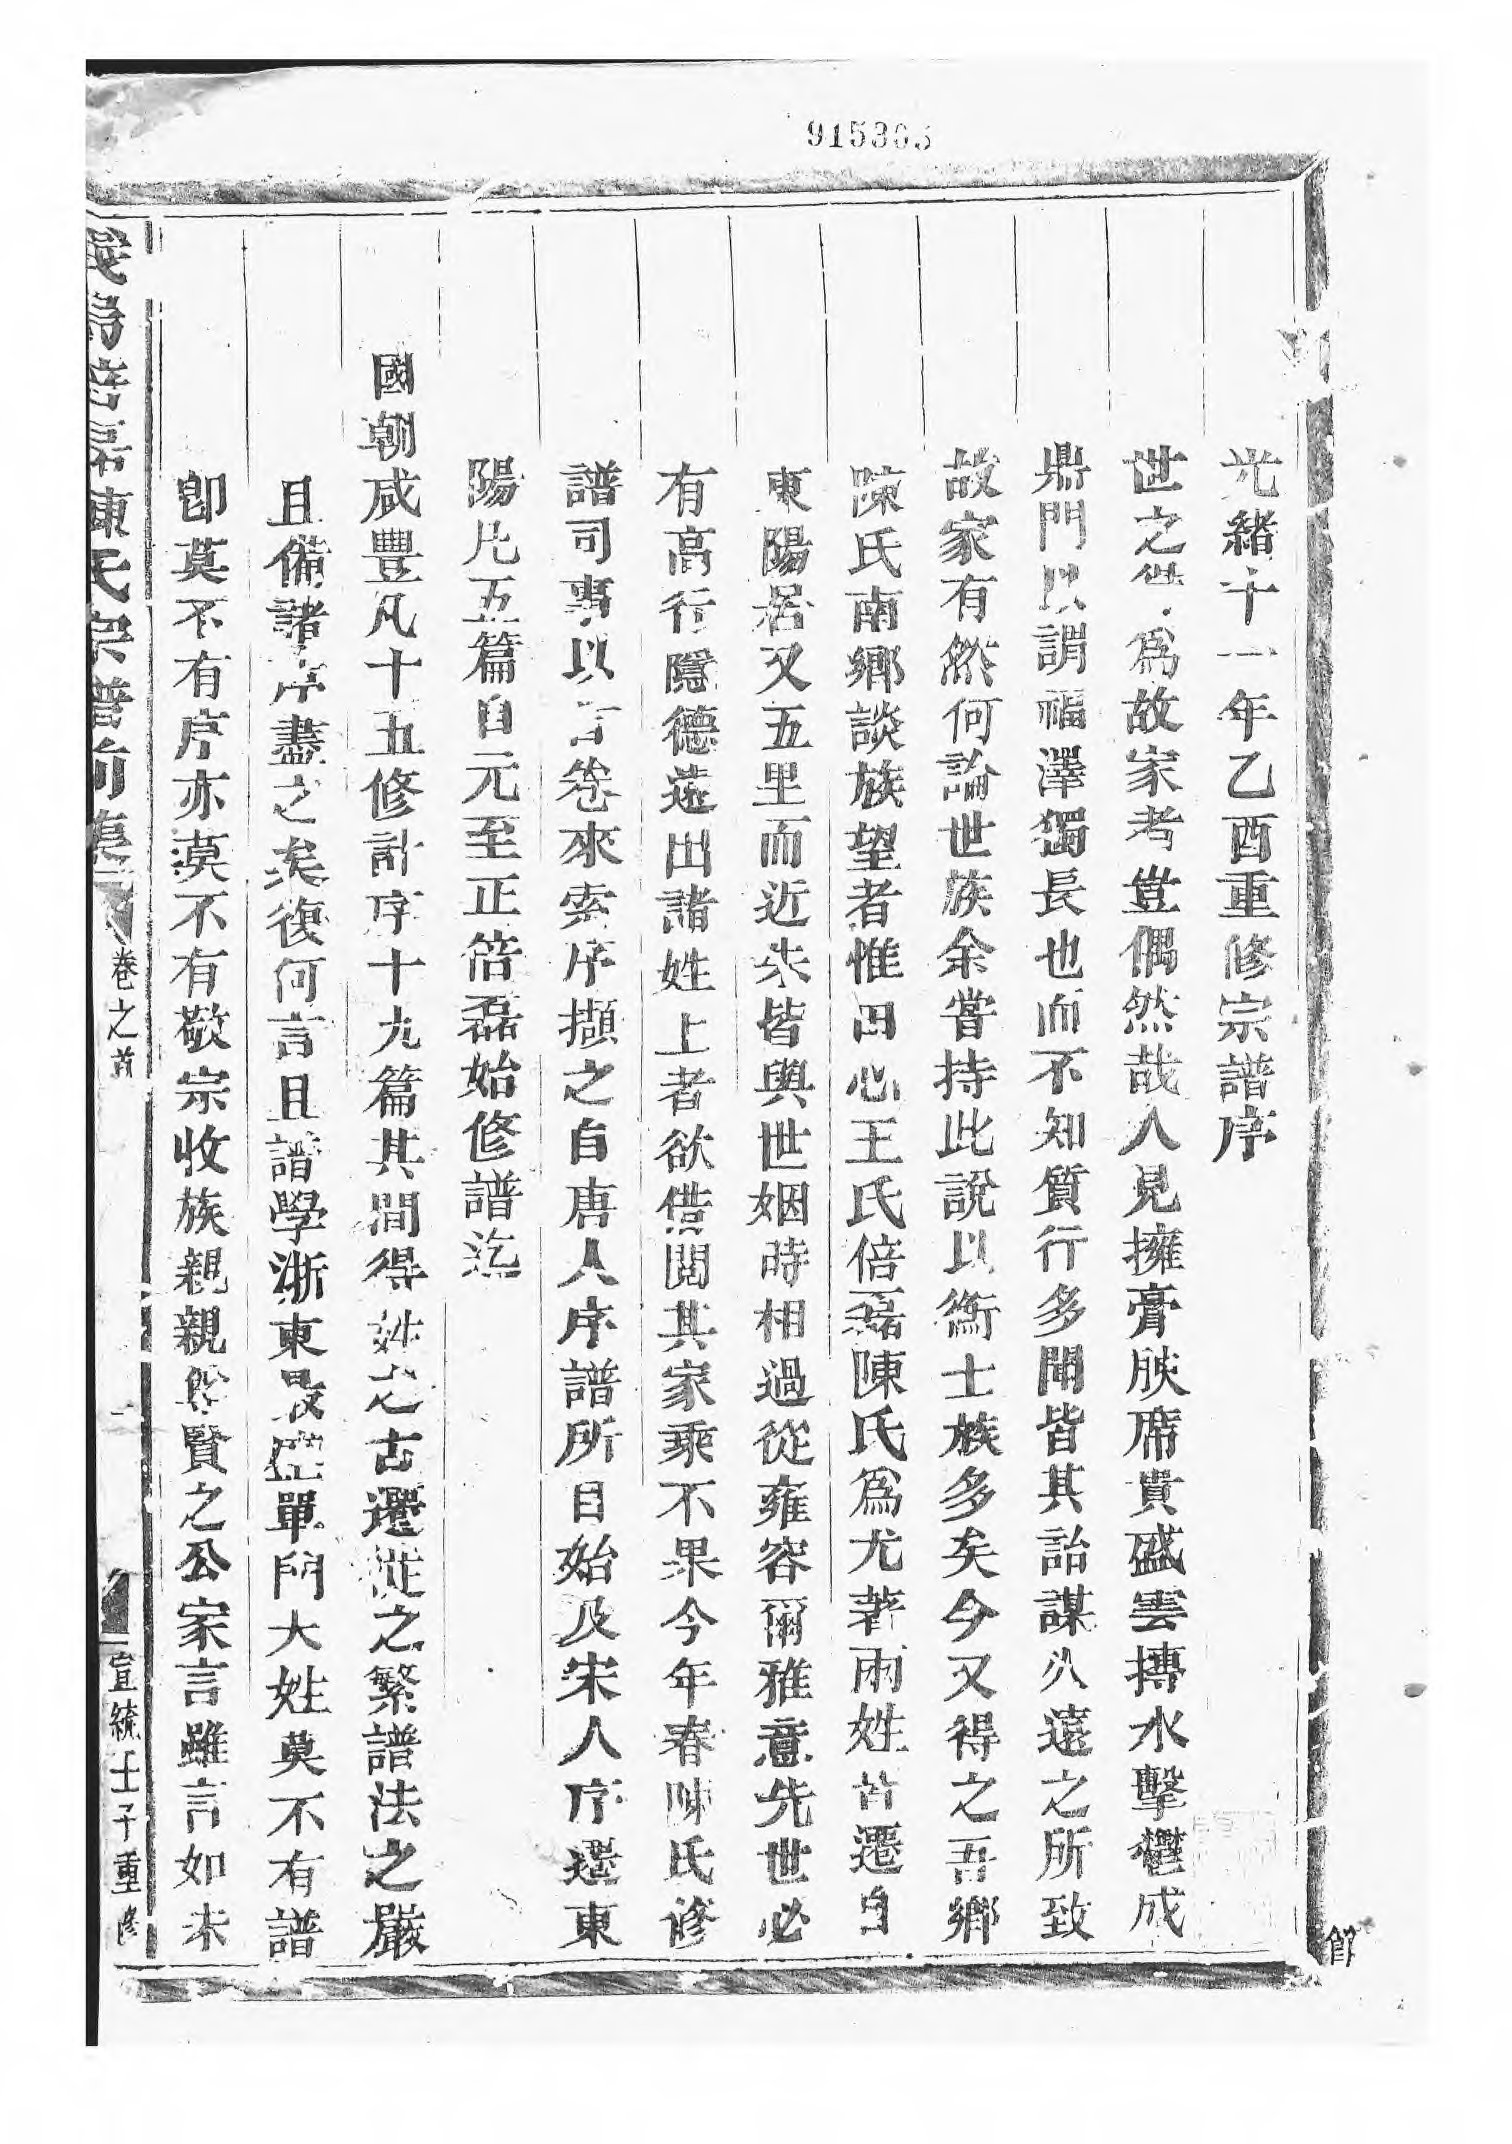 915303
光緒十一年乙酉重修宗譜序
世之 爲故家者豈偶然哉人見擁膏腴席貴盛雲摶水擊欝成
鼎門以謂福澤獨長也而不知質行多聞皆其詒謀久遠之所致
故家有然何論世族余嘗持此說以衡士族多矣今又得之吾鄉
陳氏南鄉談族望者惟田心王氏倍磊陳氏爲尤著兩姓首遷自
東陽居又五里而近朱皆與世姻時相過從雍容爾雅意先世必
有高行隱德遠出諸姓上者欲借閱其家乘不果今年春陳氏修
譜司事以 言卷來索序擷之自唐人序譜所自始及宋人序遷東
陽凡五篇自元至正倍磊始修譜迄
國朝咸豐凡十五修計序十九篇其間得姓之古遷徙之繁譜法之嚴
且備諸序盡之矣復何言且譜學浙東最盛單門大姓莫不有譜
卽莫不有序亦莫不有敬宗收族親親 賢之公家言雖言如未
義烏倍磊陳氏宗譜前集
卷之首
一
宣統壬子重修